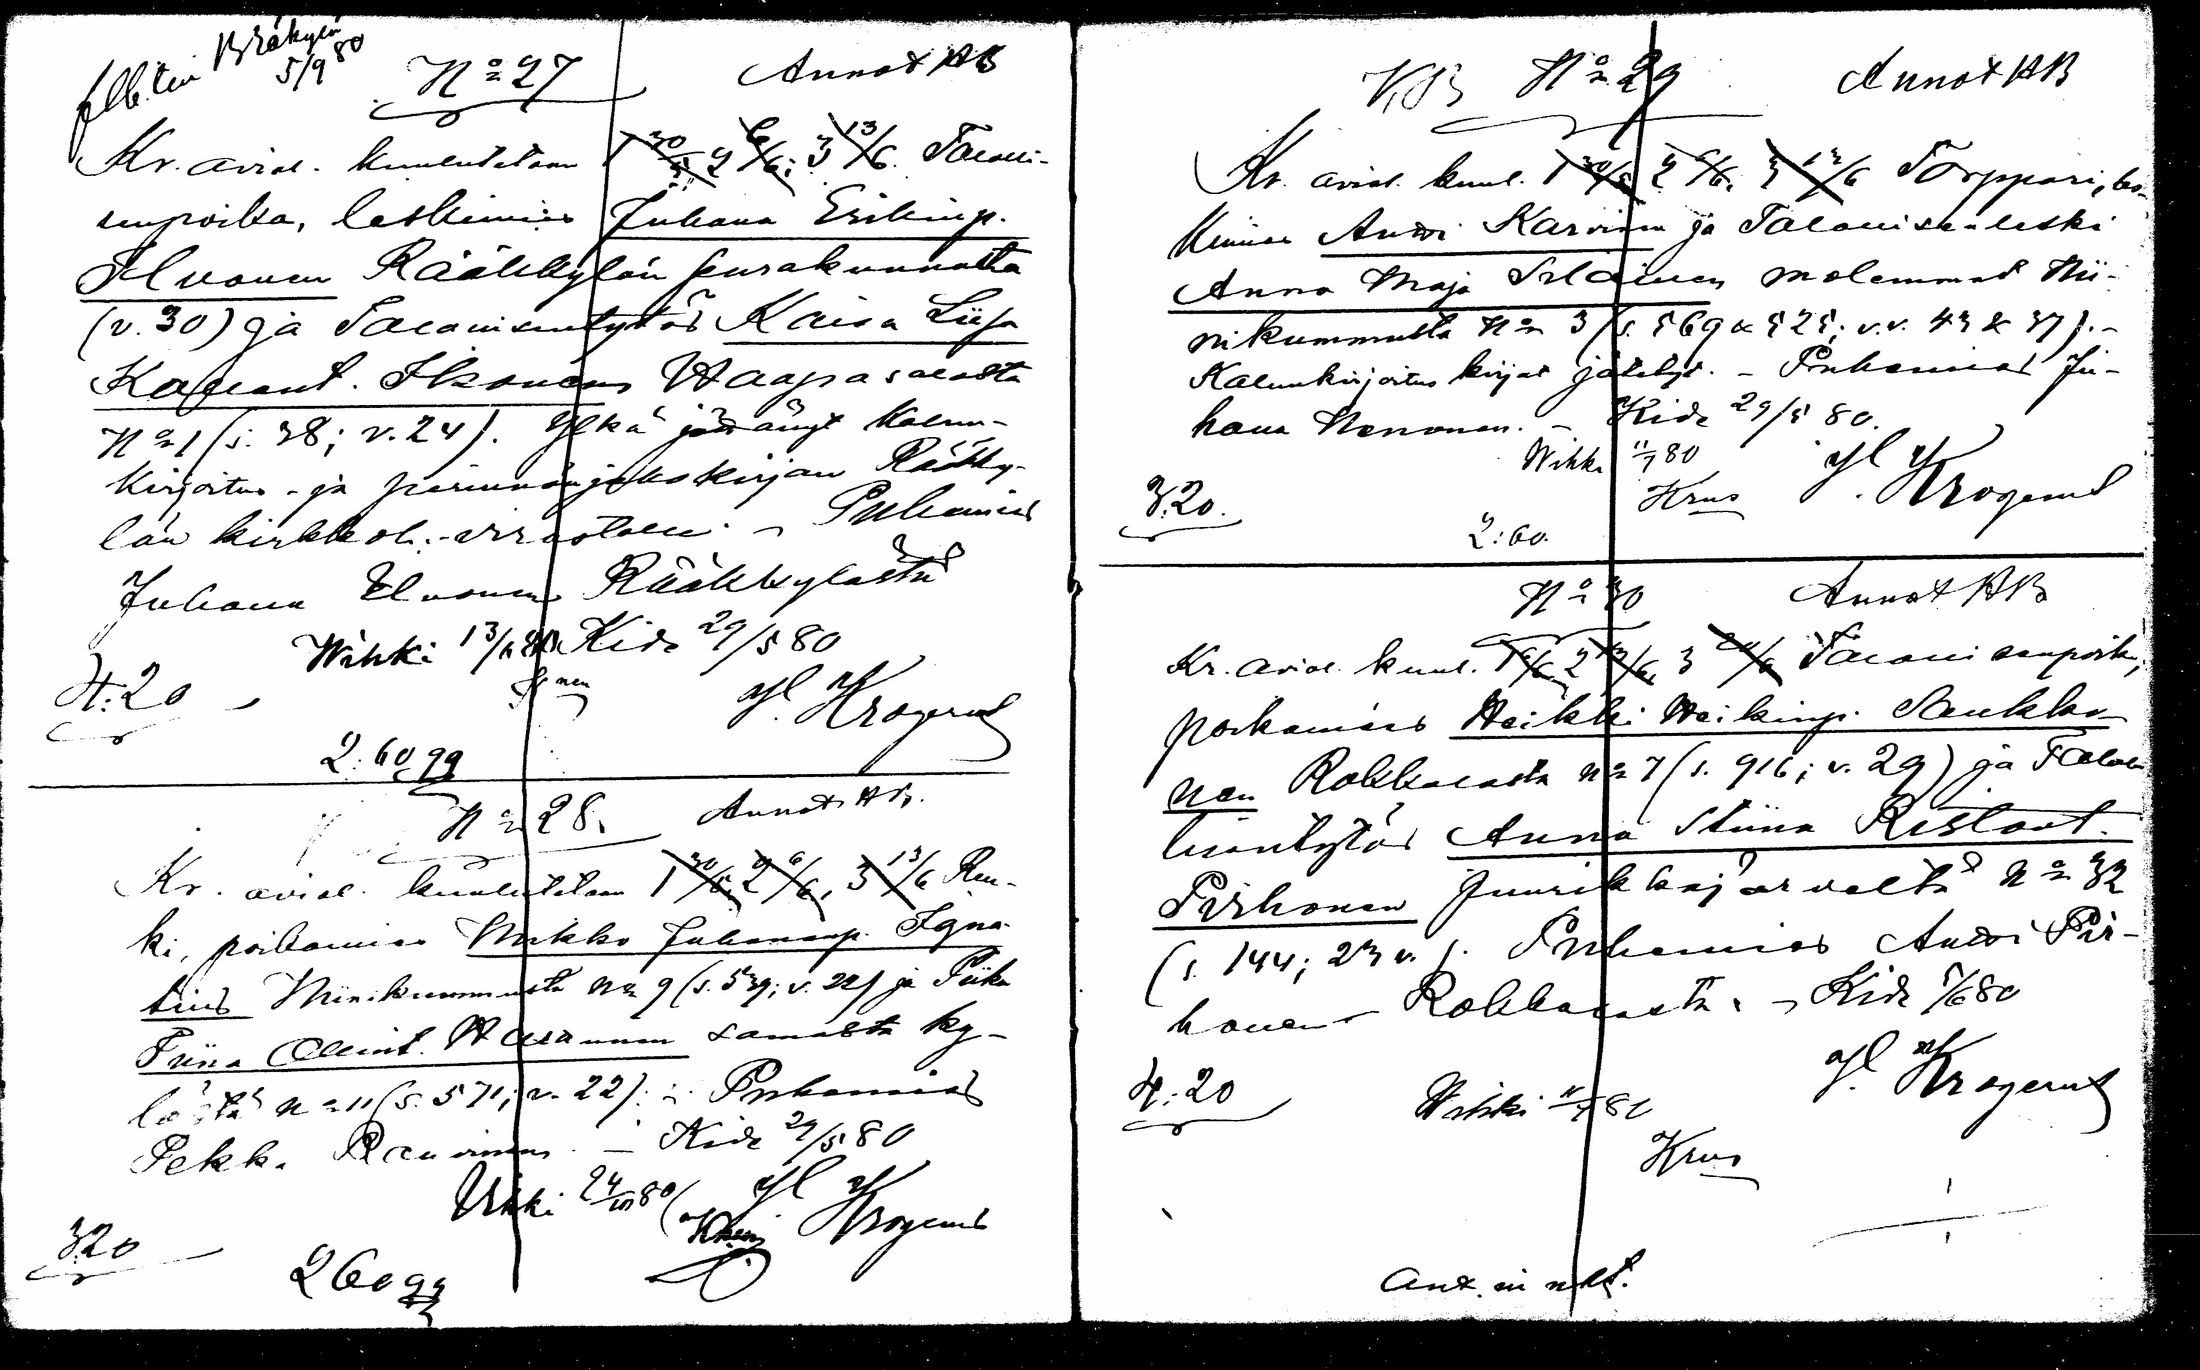 5/9 80
No 27 Annot HB
Kr. aviol. kuulutetaan 1 30/5 2 6/6; 3 13/6. Talolli-
senpoika, leskimies Juhana Erikinp.
Ilvonen Rääkkylän seurakunnasta
(v. 30) ja Talonisäntytär Kaisa Liisa
Ikonen Haapasalosta
No 1 (s. 38; v. 24). Ylkä jättänyt Kalun-
kirjoitus- ja perinnönjakokirjan Rääkky-
län kirkkoh.-virastolle. - Puhemies
Juhana Ilvonen Rääkkylästä
Wihki 13/6 80 Kide 29/5 80
4:20 Yl Krogerus
2:60
No 28. Annot HB.
Kr. aviol. kuulutetaan 1 30/5, 2 6/6, 3 13/6 Ren-
ki, poikamies Heikko Juhananp. Igna-
tius Niinikummusta No 9 (s. 539; v. 22) ja Piika
Tiina Ollint. samasta ky-
lästä No 11 (s. 571; v. 22). - Puhemies
Pekka - Kide 29/5 80
Vihki 24/10 80 Yl Krogerus
3.20
2 60
No 29 Annot HB
Kr. aviol. kuul. 1 30/5 2 6/6. 3 13/6 Torppari, les-
kimies Antti Karvinen ja Talonisän-leski
Anna Maja molemmat Nii-
nikummusta No 3 (s. 569 & 525; v.v. 43 & 37). -
Kalunkirjoitus kirjat jätetyt. - Puhemies Ju-
hana Nenonen. - Kide 29/5 80.
Wihki 11/7 80 Yl Krogerus
3.20. Krus
2:60.
No 30 Annot HB
Kr. aviol. kuul. 1 6/6 2 13/6, 3 20/6 Talonisanpoika,
poikamies Heikki Heikinp. Saukko-
nen Rokkalasta No 7 (s. 916; v. 29) ja Talol-
lisentytär Anna Stiina Ristont.
Pirhonen Juurikkajärveltä No 32
(s. 144; 23 v.). Puhemies Antti Pir-
honen Rokkalasta. - Kide 5/6 80
4:20 Yl. Krogerus
Wihki 11/7 80
Krus